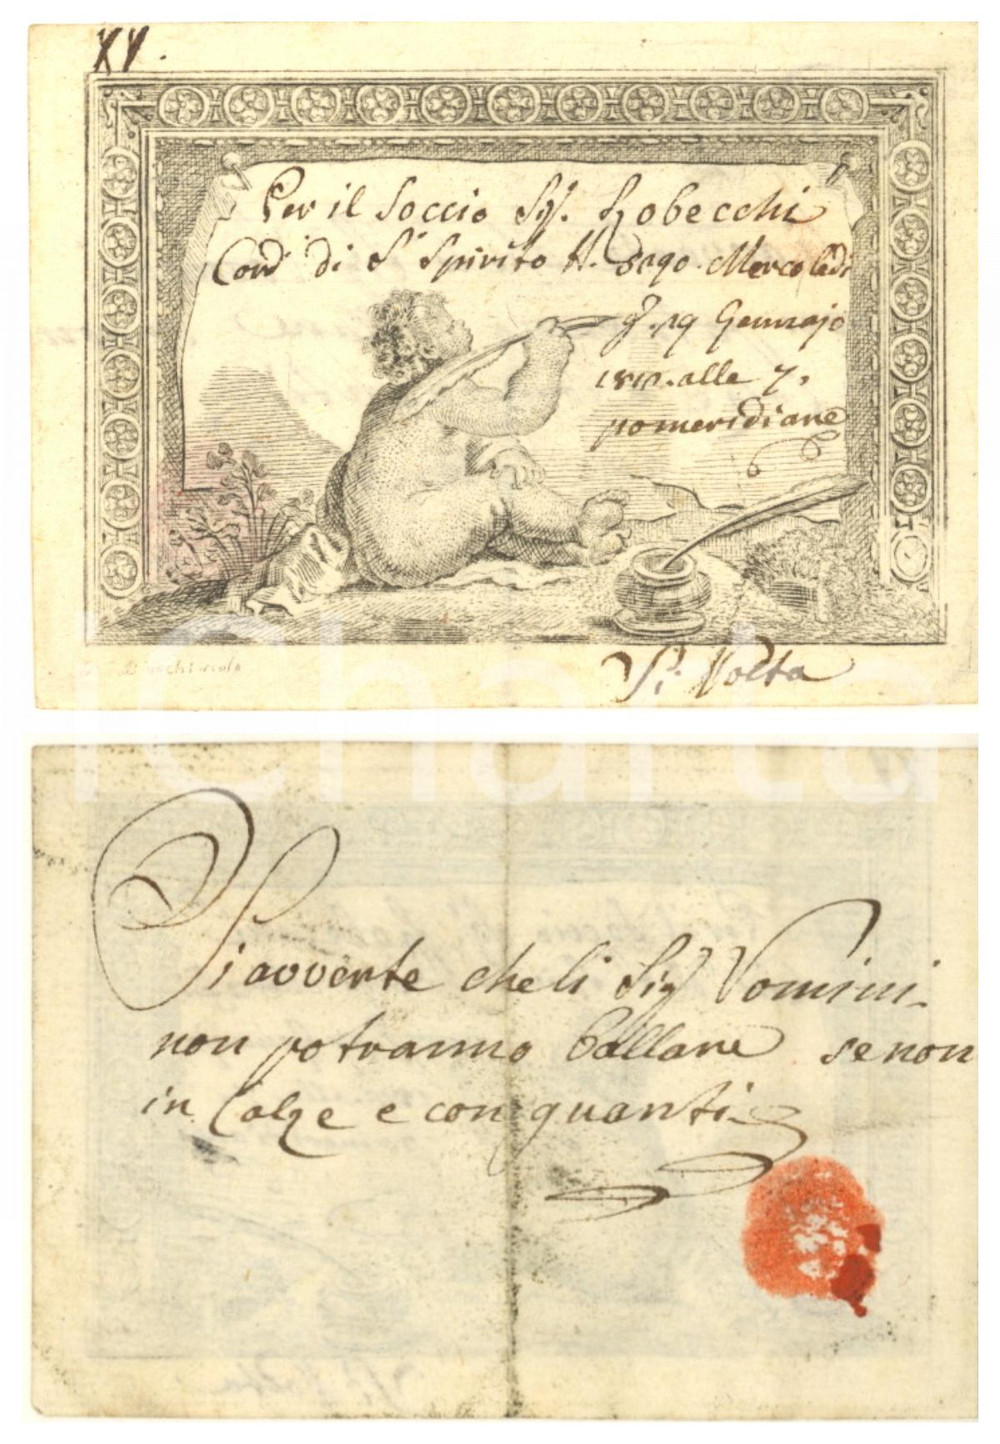 XV.
Per il Soccio Sig. Robecchi
Cond.' di S. Spirito N. 3290. Mercoledi
g. 19 Gennajo
1810. alle 7.
pomeridiane
Si Volta
iCharta
Si avverte che li Sig.ri Vomini
non potranno ballare se non
in Calze e con guanti
iCharta